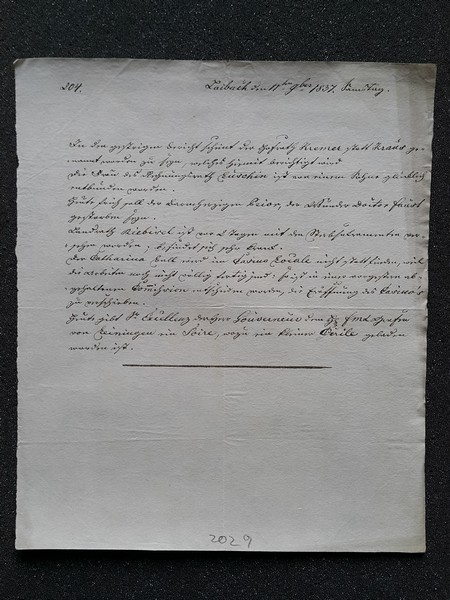 204. Laibach den 11ten 9ber 1837. Samstag.
In den gestrigen Bericht scheint der Hofrath Kremer statt Kraus ge-
nannt worden zu seyn, welches hiermit berichtigt wird
Die Frau des Rechnungsrath ist von einem Sohne glücklich
entbunden worden.
Heute früh soll der Barmherzigen Prior, der Doctor Faust
gestorben seyn.
Landrath ist vor 2 Tagen mit den Sterbsakramenten ver-
sehen worden, befindet sich sehr krank.
Der Catharina Ball wird im Casino Locale nicht statt finden, weil
die Arbeiten noch nicht völlig fertig sind; es ist in einer vorgestern ab-
gehaltenen Commission entschieden worden, die Eröffnung des Casino's
zu verschieben.
Heute gibt Sr Excellenz der Gouverneur dem FML Grafen
von Leiningen ein Soiré, wozu ein kleiner Cercle geladen
worden ist.
2029